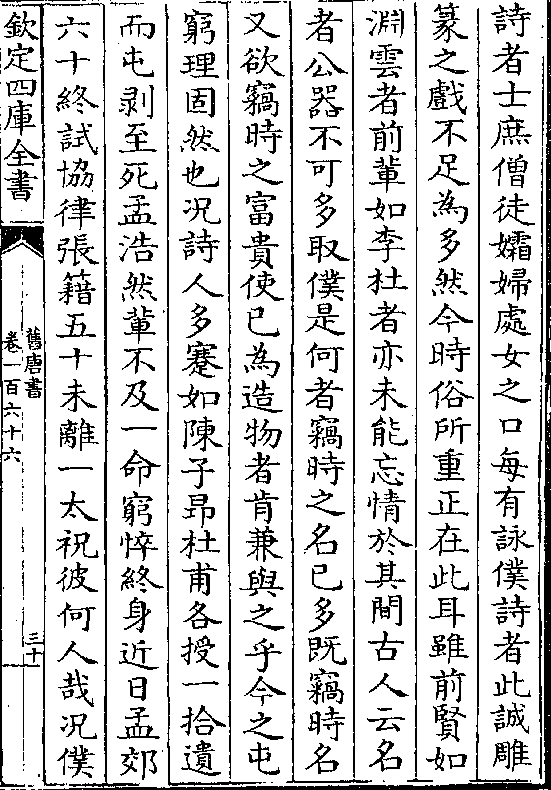 詩者士庶僧徒孀婦處女之口每有詠僕詩者此誠雕
篆之戲不足為多然今時俗所重正在此耳雖前賢如
淵雲者前輩如李杜者亦未能忘情於其間古人云名
者公器不可多取僕是何者竊時之名已多既竊時名
又欲竊時之富貴使已為造物者肯兼與之乎今之屯
窮理固然也況詩人多蹇如陳子昻杜甫各授一拾遺
而屯剥至死孟浩然輩不及一命窮悴終身近日孟郊
六十終試協律張籍五十未離一太祝彼何人哉況僕
欽定四庫全書
舊唐書
卷一百六十六
三十